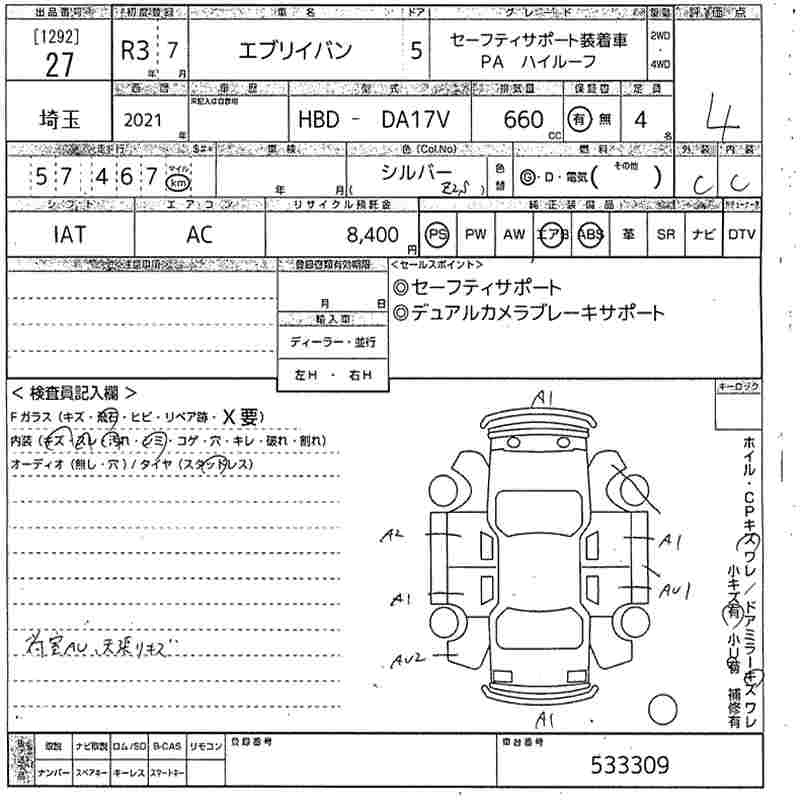 出品番号 初度登録 車名 ドア グレード 駆動 評価点
[1292]
27 R3年 7月 エブリイバン 5 セーフティサポート装着車 2WD
PA ハイルーフ 4WD
4
西暦 車歴 型式 排気量 保証書 定員
※記入は自家用
埼玉 2021年 HBD - DA17V 660cc 有 無 4名
走行 S#* 車検 色 (Col.No) 燃料 外装 内装
57467 マイル km 年 月( シルバー Z2S ) 色替 G・D・電気( その他 ) C C
シフト エアコン リサイクル預託金 純正装備品
IAT AC 8,400円 PS PW AW エアB ABS 革 SR ナビ DTV
注意事項 登録書類有効期限 <セールスポイント>
月 日 ◎セーフティサポート
輸入車 ◎デュアルカメラブレーキサポート
ディーラー・並行
左H・右H
<検査員記入欄> キーロック
Fガラス(キズ・飛石・ヒビ・リペア跡・X要)
内装(キズ・スレ・汚れ・シミ・コゲ・穴・キレ・破れ・割れ)
オーディオ(無し・穴)/タイヤ(スタッドレス)
荷室AU、天張りキズ
A1
A2 A1
A1 AU1
AU2
A1
ホイル・CPキズワレ/ドアミラーキズワレ
小キズ有 小U有 補修有
取説 ナビ取説 ロム/SD B-CAS リモコン 登録番号 車台番号
ナンバー スペアキー キーレス スマートキー 533309